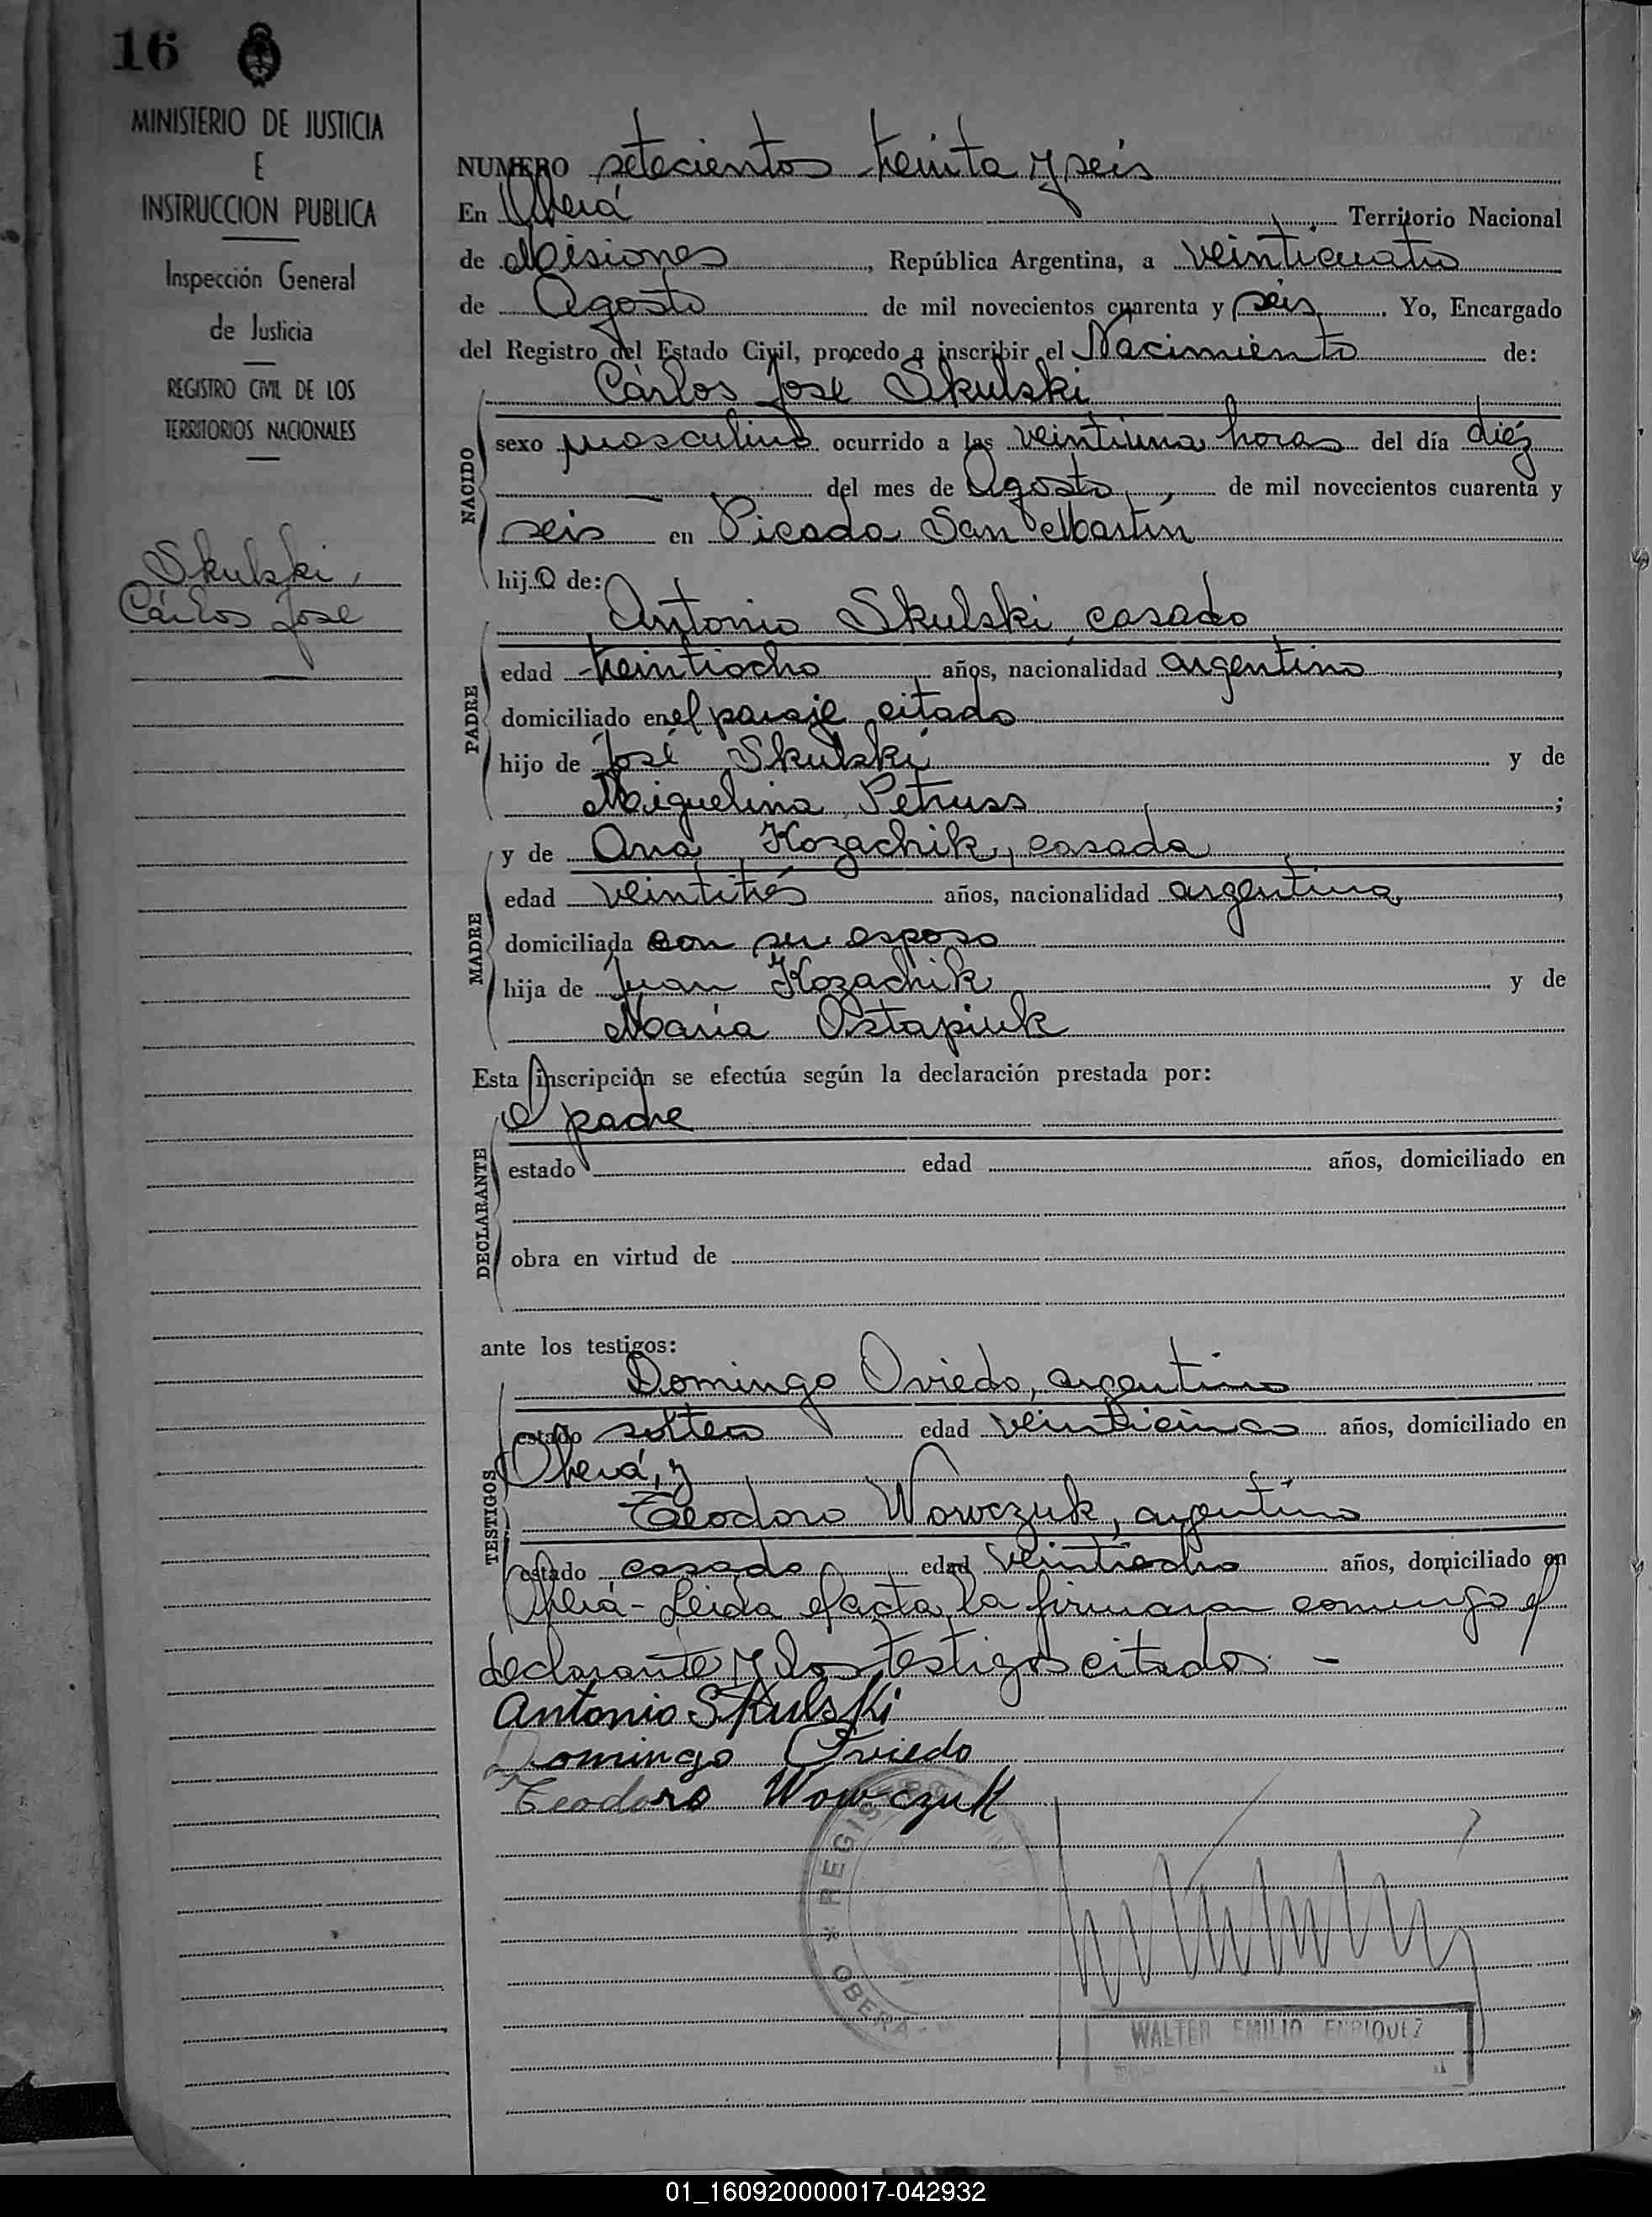 16
MINISTERIO DE JUSTICIA
E
INSTRUCCION PUBLICA
Inspección General
de Justicia
REGISTRO CIVIL DE LOS
TERRITORIOS NACIONALES
Skulski,
Cárlos Jose
NUMERO setecientos treinta y seis
En Oberá Territorio Nacional
de Misiones, República Argentina, a veinticuatro
de Agosto de mil novecientos cuarenta y seis. Yo, Encargado
del Registro del Estado Civil, procedo a inscribir el Nacimiento de:
Cárlos Jose Skulski
NACIDO
sexo masculino ocurrido a las veintiuna horas del día diéz
del mes de Agosto, de mil novecientos cuarenta y
seis en Picada San Martín
hijo de:
Antonio Skulski, casado
PADRE
edad treintiocho años, nacionalidad argentino,
domiciliado en el paraje citado
hijo de José Skulski y de
Miguelina Petruss;
y de Ana Kozachik, casada
MADRE
edad veintitrés años, nacionalidad argentina,
domiciliada con su esposo
hija de Juan Kozachik y de
María Ostapiuk
Esta inscripción se efectúa según la declaración prestada por:
el padre
DECLARANTE
estado edad años, domiciliado en
obra en virtud de
ante los testigos:
Domingo Oviedo, argentino
TESTIGOS
estado soltero edad veinticinco años, domiciliado en
Oberá, y
Teodoro Wowczuk, argentino
estado casado edad veintiocho años, domiciliado en
Oberá - Leida el acta, la firmaron conmigo el
declarante y los testigos citados. -
Antonio Skulski
Domingo Oviedo
Teodoro Wowczuk
REGISTRO
OBERÁ
WALTER EMILIO ENRIQUEZ
01_160920000017-042932